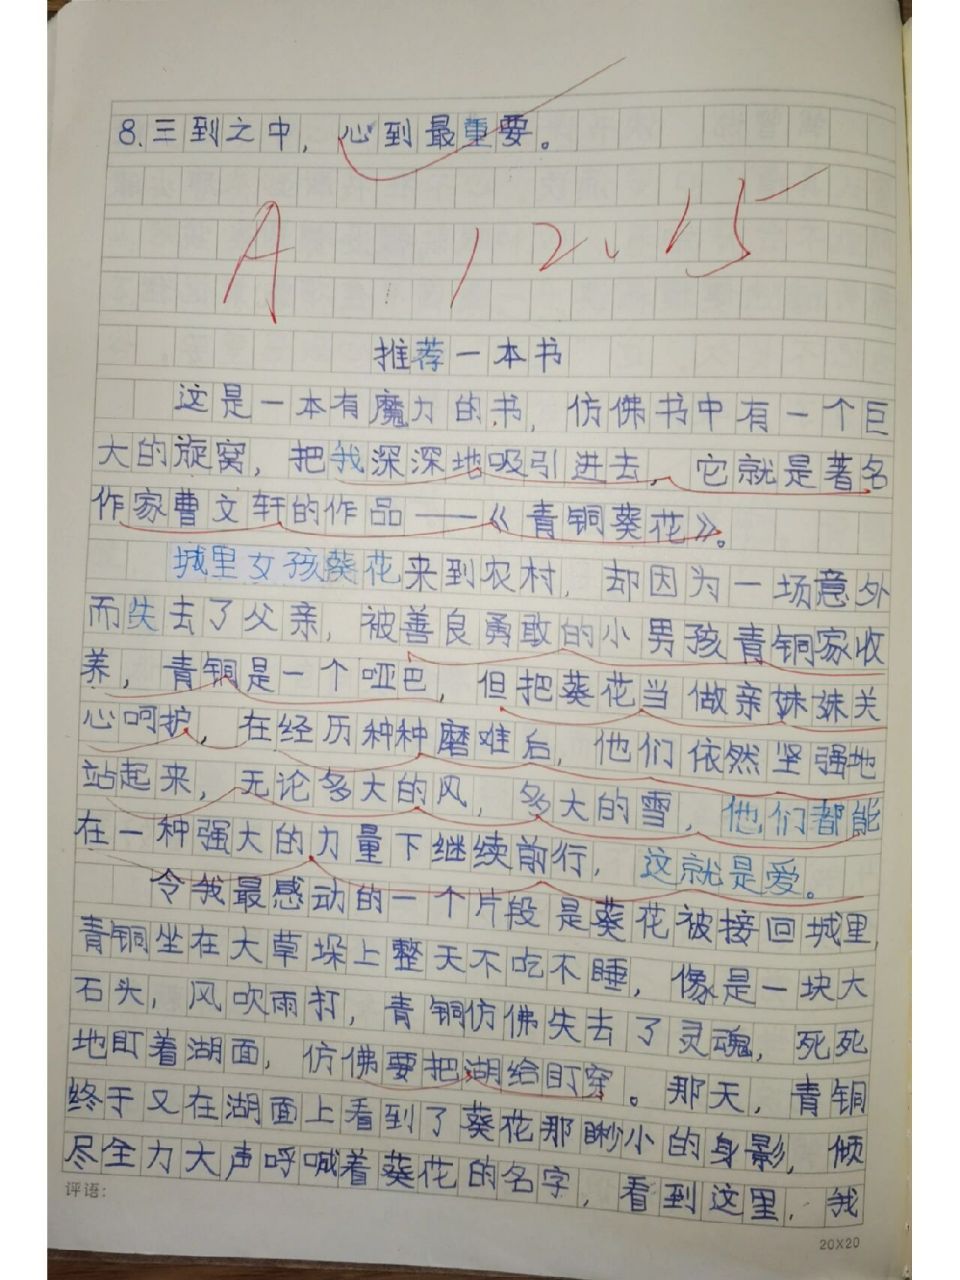 8.三到之中，心到最重要。
A 12.15
推荐一本书
这是一本有魔力的书，仿佛书中有一个巨
大的旋窝，把我深深地吸引进去，它就是著名
作家曹文轩的作品——《青铜葵花》。
城里女孩葵花来到农村，却因为一场意外
而失去了父亲，被善良勇敢的小男孩青铜家收
养，青铜是一个哑巴，但把葵花当做亲妹妹关
心呵护，在经历种种磨难后，他们依然坚强地
站起来，无论多大的风，多大的雪，他们都能
在一种强大的力量下继续前行，这就是爱。
令我最感动的一个片段是葵花被接回城里，
青铜坐在大草垛上整天不吃不睡，像是一块大
石头，风吹雨打，青铜仿佛失去了灵魂，死死
地盯着湖面，仿佛要把湖给盯穿。那天，青铜
终于又在湖面上看到了葵花那瞅小的身影，倾
尽全力大声呼喊着葵花的名字，看到这里，我
评语：
20X20